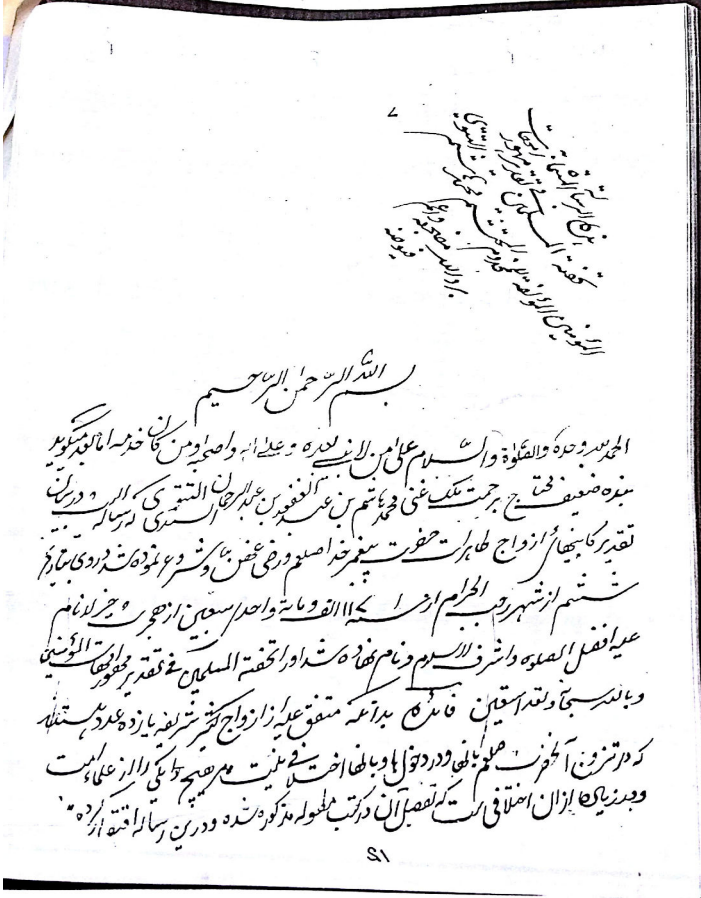 ٧
هذه الرسالة المسماة
تحفة المسلمين في تقدير مهور امهات
المؤمنين المؤلفة للمخدوم محمد هاشم التتوي
فيوضه
بسم الله الرحمن الرحيم
الحمد لله وحده والصلوة والسلام علی من لا نبی بعده و علی اله واصحابه ومن کان خدمه اما بعد میگوید
بنده ضعیف محتاج برحمت ملک غنی محمد هاشم بن عبد الغفور بن عبد الرحمان التتوی السندی که رساله ایست در بیان
تقدیر کابینهائ ازواج طاهرات حضرت پیغمبر خدا صلعم ورضی عنهن وشروع نموده شد دروی بتاریخ
ششم از شهر رجب الحرام از سنه ١١٧١ الف و مایة واحد سبعین از هجرت خیر الانام
علیه افضل الصلوة واشرف السلام و نام نهاده شد اورا تحفة المسلمین فی تقدیر مهور امهات المؤمنین
وبالله سبحانه وتعالی استعین فائده بدانکه متفق علیه از ازواج شریفه یازده عدد هستند
که در تزوج آنحضرت صلعم بانها ودر دخول بانها اختلافی نیست مر هیچ یکی را از علماء امت
ودر زیاده ازان اختلافی است که تفصیل آن در کتب مطوله مذکور شده ودرین رساله اقتصار کرده
٢١